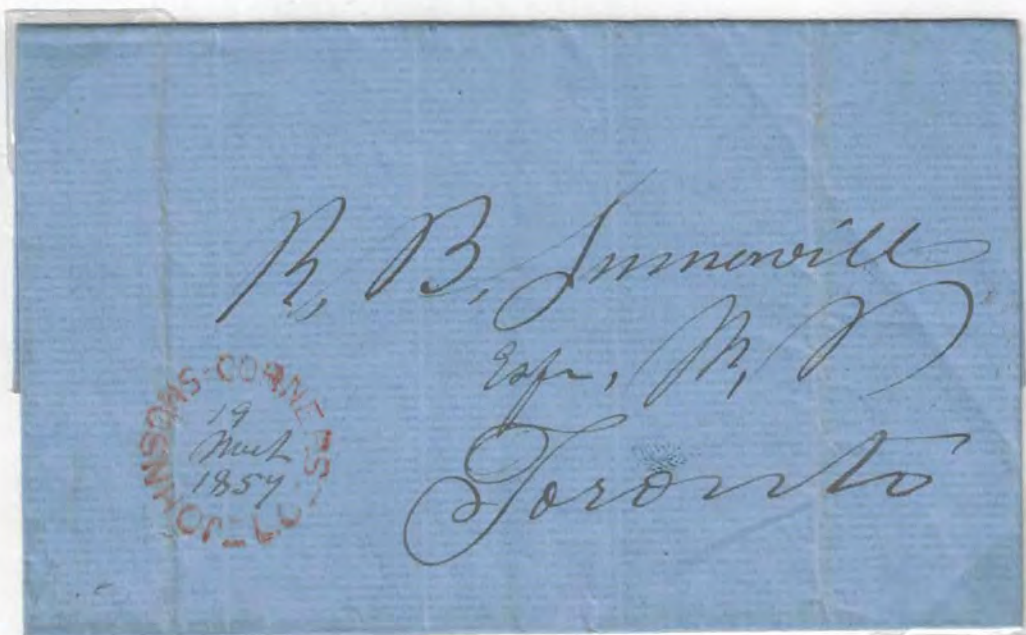 R, B, Summervill
Esqr, M, P
Toronto
JOHNSONS-CORNERS-
L-C-
19
March
1857